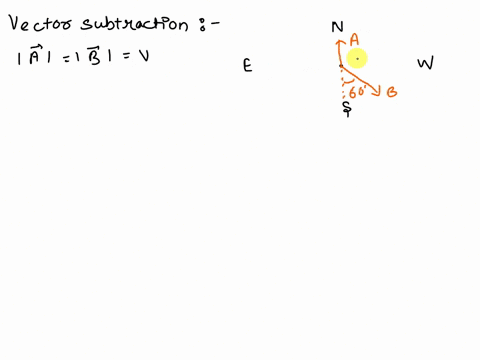 Vector subtraction :-
|A⃗| = |B⃗| = V
N
A
E
W
60°
B
S